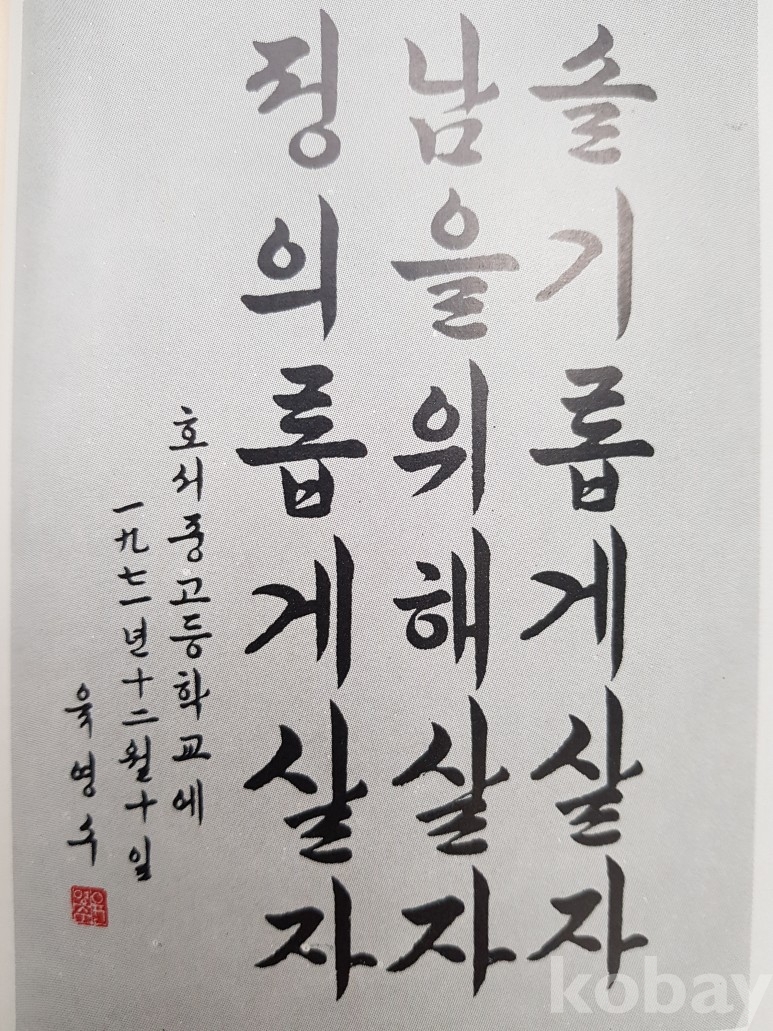 슬기롭게살자
남을위해살자
정의롭게살자
호서중고등학교에
一九七一년十二월十일
육영수
kobay